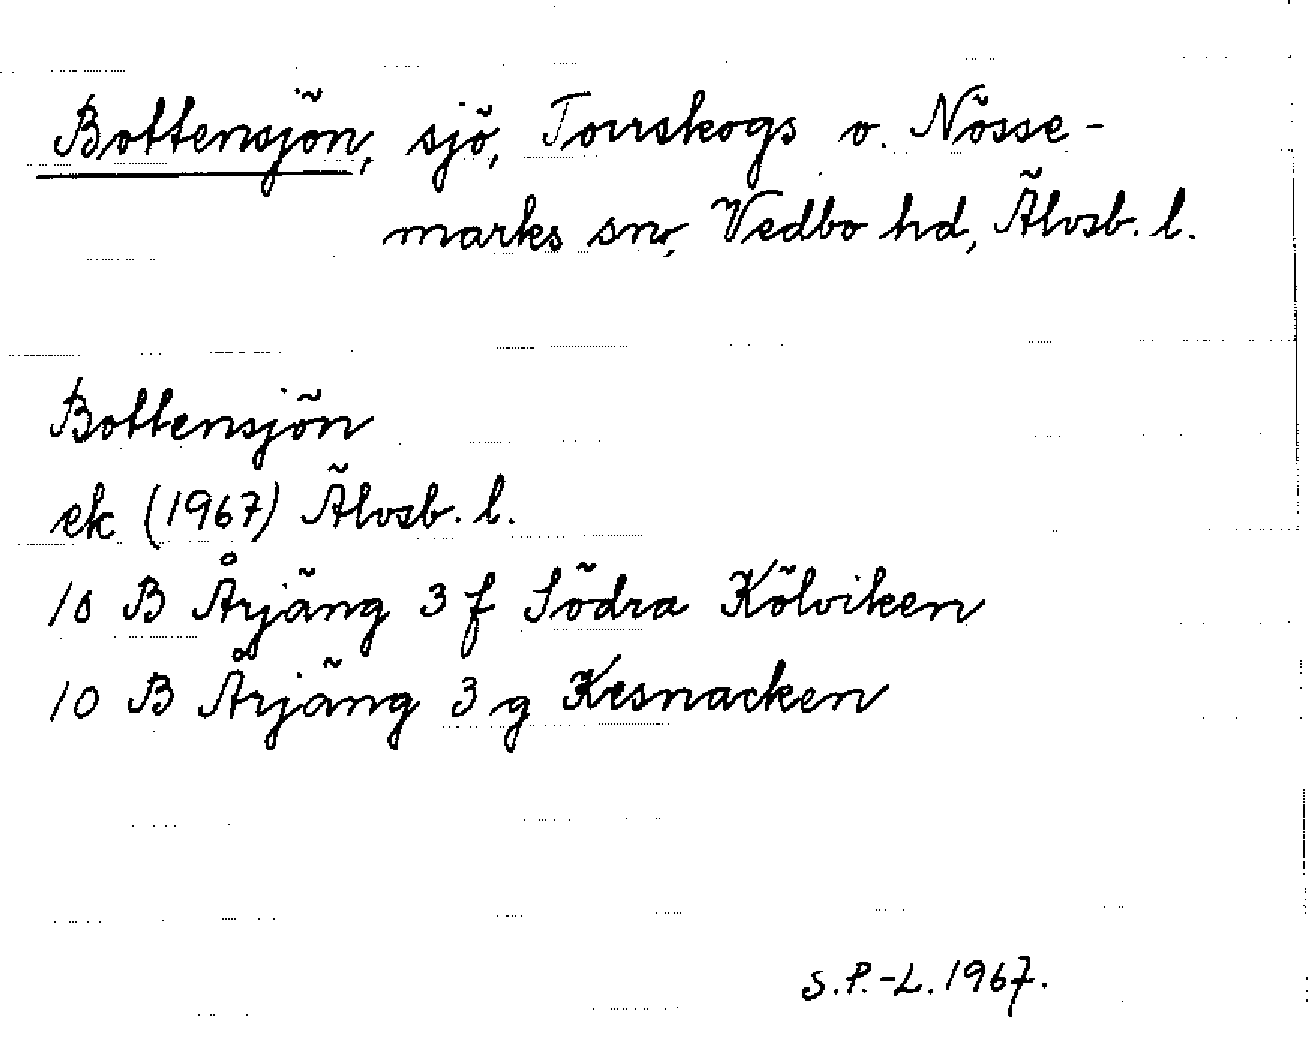 Bottensjön, sjö, Torrskogs o. Nösse-
marks snr, Vedbo hd, Älvsb. l.
Bottensjön
ek (1967) Älvsb. l.
10 B Årjäng 3 f Södra Kölviken
10 B Årjäng 3 g Kesnacken
S.P.-L. 1967.